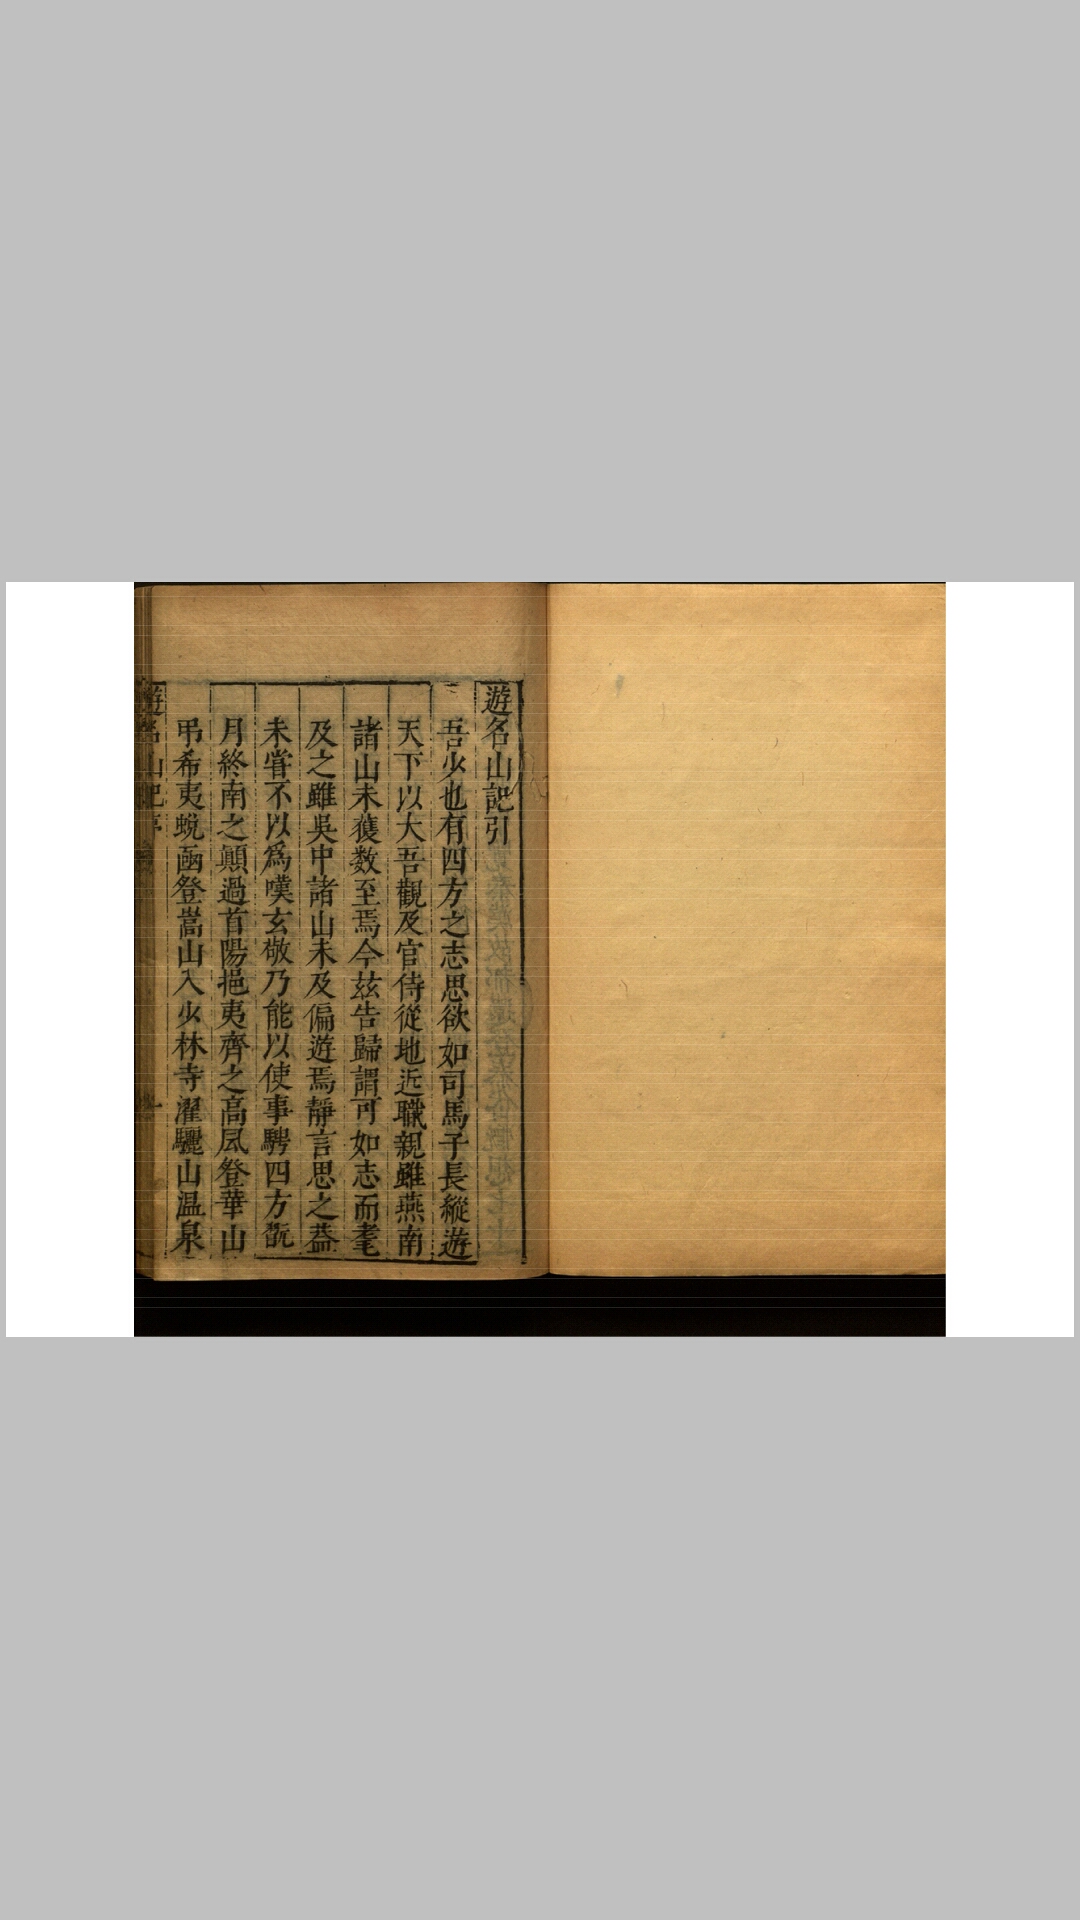 遊名山記引
吾少也有四方之志思欲如司馬子長縱遊
天下以大吾觀及官侍從地近職親雖燕南
諸山未獲数至焉今玆告歸謂可如志而耄
及之雖吳中諸山未及徧遊焉靜言思之葢
未嘗不以爲嘆玄敬乃能以使事騁四方翫
月終南之顛過首陽挹夷齊之高風登華山
弔希夷蛻函登嵩山入少林寺濯驪山温泉
遊名山記序